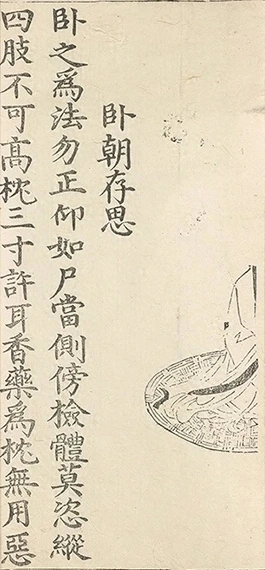 卧朝存思
卧之為法勿正仰如尸當側傍檢體莫恣縱
四肢不可髙枕三寸許耳香藥為枕無用惡